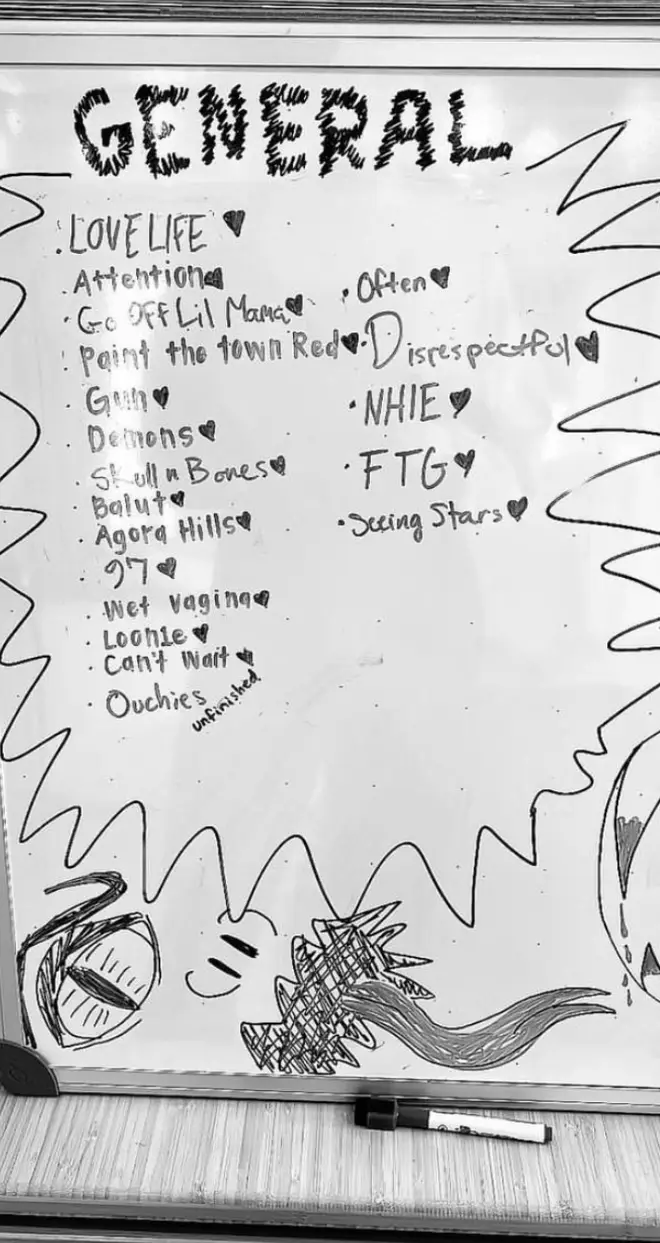 GENERAL
. LOVE LIFE ♥
. Attention♥
· Go OFF Lil Mama♥
· Paint the town Red♥
· Gun♥
· Demons♥
· Skull n Bones♥
· Balut♥
· Agora Hills♥
· 97♥
· Wet Vagina♥
· Loonie♥
· Can't Wait ♥
· Ouchies
unfinished
· Often♥
· Disrespectful♥
· NHIE♥
· FTG♥
· Seeing Stars♥